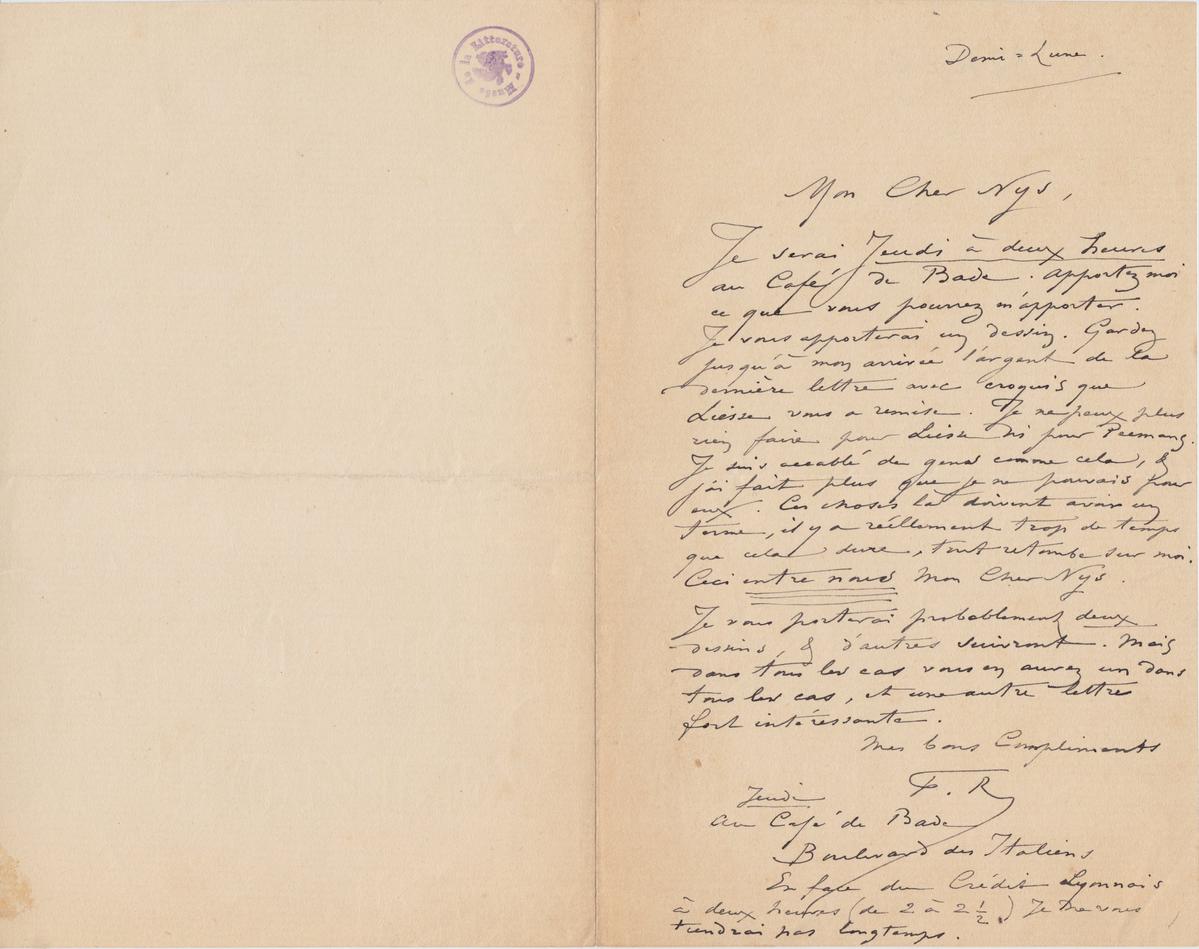 Musée de la Littérature
Demi=Lune.
Mon Cher Nys,
Je serai Jeudi à deux heures
au Café de Bade. apportez moi
ce que vous pourrez m'apporter.
Je vous apporterai un dessin. Gardez
jusqu'à mon arrivée l'argent de la
dernière lettre avec croquis que
Liesse vous a remise. Je ne peux plus
rien faire pour Liesse ni pour
Je suis accablé de gens comme cela, &
j'ai fait plus que je ne pouvais pour
eux. Ces choses là doivent avoir un
terme, il y a réellement trop de temps
que cela dure, tout retombe sur moi.
Ceci entre nous Mon Cher Nys.
Je vous porterai probablement deux
dessins, & d'autres suivront. Mais
dans tous les cas vous en aurez un dans
tous les cas, et une autre lettre
fort intéressante.
Mes bons Compliments
F. R
Jeudi
au Café de Bade
Boulevard des Italiens
En face du Crédit Lyonnais
à deux heures (de 2 à 2 ½) Je ne vous
tiendrai pas longtemps.